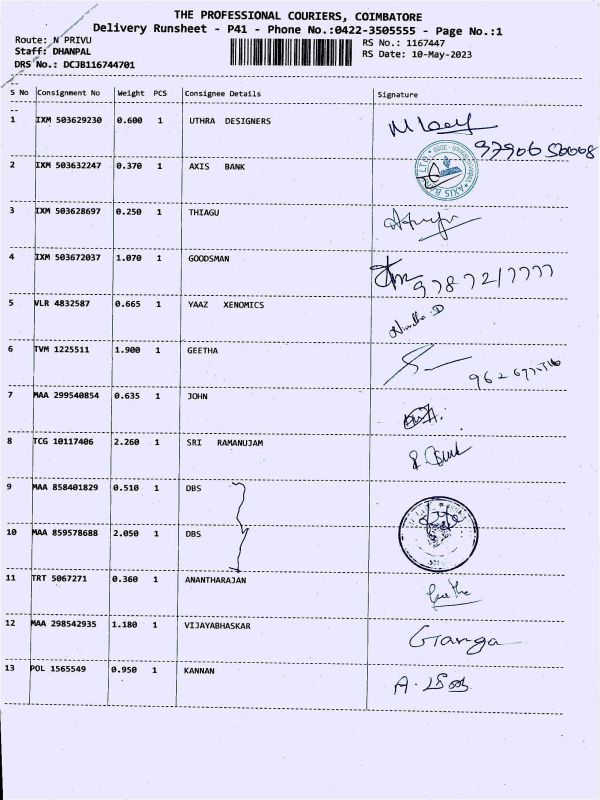 THE PROFESSIONAL COURIERS, COIMBATORE
Delivery Runsheet - P41 - Phone No.:0422-3505555 - Page No.:1
Route: N PRIVU
RS No.: 1167447
Staff: DHANPAL
RS Date: 10-May-2023
DRS No.: DCJB116744701
S No Consignment No Weight PCS Consignee Details Signature
1 IXM 503629230 0.600 1 UTHRA DESIGNERS
2 IXM 503632247 0.370 1 AXIS BANK
3 IXM 503628697 0.250 1 THIAGU
4 IXM 503672037 1.070 1 GOODSMAN
5 VLR 4832587 0.665 1 YAAZ XENOMICS
6 TVM 1225511 1.900 1 GEETHA
7 MAA 299540854 0.635 1 JOHN
8 TCG 10117406 2.260 1 SRI RAMANUJAM
9 MAA 858401829 0.510 1 DBS
10 MAA 859578688 2.050 1 DBS
11 TRT 5067271 0.360 1 ANANTHARAJAN
12 MAA 298542935 1.180 1 VIJAYABHASKAR Ganga
13 POL 1565549 0.950 1 KANNAN